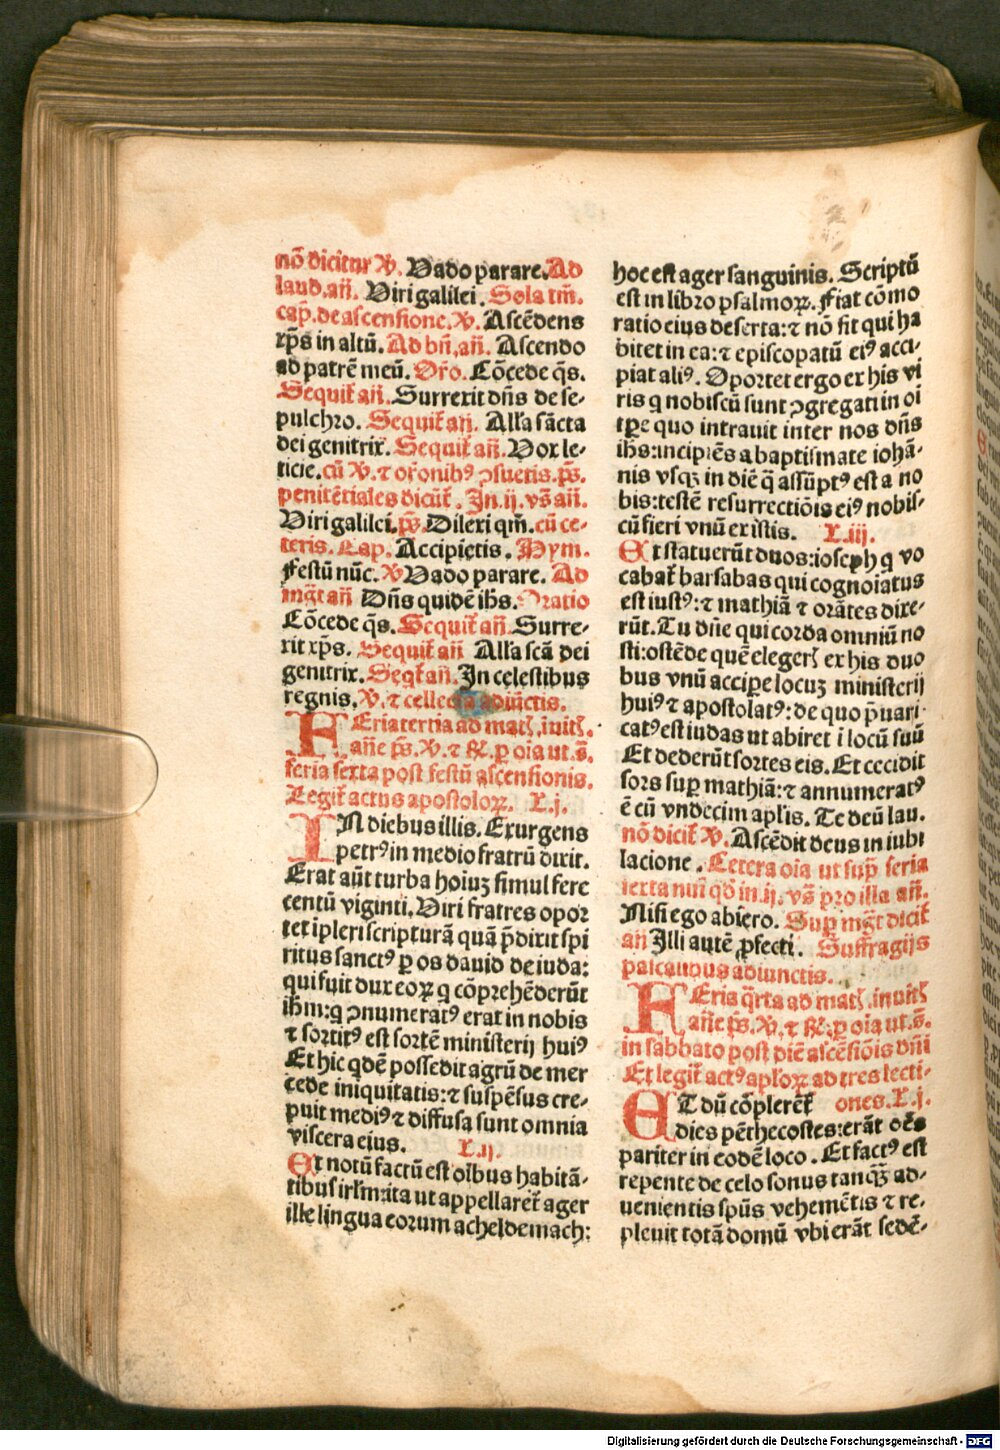 nō dicitur ℣. Vado parare. Ad
laud. añ. Viri galilei. Sola tm̄.
cap̄. de ascensione. ℣. Ascēdens
xp̄s in altū. Ad bñ. añ. Ascendo
ad patrē meū. Or̄o. Cōcede q̄s.
Sequit᷑ añ. Surrexit dn̄s de se-
pulchro. Sequit᷑ añ. Alla sācta
dei genitrix. Sequit᷑ añ. Vox le-
ticie. cū ℣. ⁊ or̄onibꝰ ꝯsuetis. p̄s.
penitētiales dicūt᷑. In .ij. vs̄ añ.
Viri galilei. p̄s. Dilexi qm̄. cū ce-
teris. Cap. Accipietis. Hym.
Festū nūc. ℣ Vado parare. Ad
mḡt añ Dn̄s quidē ih̄s. Oratio
Cōcede q̄s. Sequit᷑ añ. Surre-
xit xp̄s. Sequit᷑ añ Alla scā dei
genitrix. Seqt᷑ añ. In celestibus
regnis. ℣. ⁊ collecta adiūctis.
FEria tertia ad mat᷑. iuit᷑.
añe p̄s. ℣. ⁊ ℟. ꝑ oīa ut .s̄.
feria sexta post festū ascensionis.
Legit᷑ actus apostoloꝝ. L. j.
IN diebus illis. Exurgens
petrꝰ in medio fratrū dixit.
Erat aūt turba hoīuꝫ simul fere
centū viginti. Viri fratres opor
tet ipleri scripturā quā p̄dixit spi
ritus sanctꝰ ꝑ os dauid de iuda:
qui fuit dux eoꝝ q cōprehēderūt
ih̄m: q ꝯnumeratꝰ erat in nobis
⁊ sortitꝰ est sortē ministerij huiꝰ
Et hic qdē possedit agrū de mer
cede iniquitatis: ⁊ suspēsus cre-
puit mediꝰ ⁊ diffusa sunt omnia
viscera eius. L. ij.
Et notū factū est oībus habitā-
tibus irl̄m: ita ut appellaret᷑ ager
ille lingua eorum acheldemach:
hoc est ager sanguinis. Scriptū
est in libro psalmoꝝ. Fiat cōmo
ratio eius deserta: ⁊ nō sit qui ha
bitet in ea: ⁊ episcopatū eiꝰ acci-
piat aliꝰ. Oportet ergo ex his vi
ris q nobiscū sunt ꝯgregati in oī
tp̄e quo intrauit inter nos dn̄s
ih̄s: incipiēs a baptismate iohā-
nis vsqꝫ in diē q̄ assūptꝰ est a no
bis: testē resurrectiōis eiꝰ nobis-
cū fieri vnū ex istis. L. iij.
Et statuerūt duos: ioseph q vo
cabat᷑ barsabas qui cognoiatus
est iustꝰ: ⁊ mathiā ⁊ orātes dixe-
rūt. Tu dn̄e qui corda omniū no
sti: ostēde quē elegeris ex his duo
bus vnū accipe locuꝫ ministerij
huiꝰ ⁊ apostolatꝰ: de quo p̄uari-
catꝰ est iudas ut abiret i locū suū
Et dederūt sortes eis. Et cecidit
sors suꝑ mathiā: ⁊ annumeratꝰ
ē cū vndecim apl̄is. Te deū lau.
nō dicit᷑ ℣. Ascēdit deus in iubi
lacione. Cetera oīa ut sup̄ feria
sexta nisi qd̄ in .ij. vs̄ pro illa añ.
Nisi ego abiero. Sup̄ mḡt dicit᷑
añ Illi autē ꝓfecti. Suffragijs
pascaubus adiunctis.
FEria q̄rta ad mat᷑. inuit᷑
añe p̄s. ℣. ⁊ ℟. ꝑ oīa ut .s̄.
in sabbato post diē ascēsiōis dn̄i
Et legit᷑ actꝰ apl̄oꝝ ad tres lecti-
ET dū cōplerēt᷑ ones. L. j.
dies pēthecostes: erāt oēs
pariter in eodē loco. Et factꝰ est
repente de celo sonus tanqꝫ ad-
uenientis sp̄us vehemētis ⁊ re-
pleuit totā domū vbi erāt sedē-
Digitalisierung gefördert durch die Deutsche Forschungsgemeinschaft - DFG